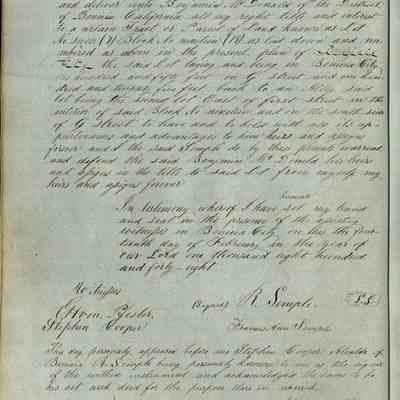 and deliver unto Benjamin McDonald of the District
of Benicia California all my right title and interest
to a certain Tract or Parcel of Land known as Lot
No seven (7) Block No nineteen (19) as laid down and nu
mbered as above in the present plan of Benicia
City the said Lot laying and being in Benicia City
one hundred and fifty feet on G street and one hun
dred and twenty five feet back to an Alley said
lot being the second lot East of first street on the
of said Block No nineteen and on the south side
of G Street to have and to hold with all its ap-
purtenances and advantages to him heirs and assigns
forever and I the said Semple do by these presents warrant
and defend the said Benjamin McDonald his heirs
and assigns in the title to said lot from myself my
heirs and assigns forever
hereunto
In testimony whereof I have set my hand
and seal in the presence of the
witnesses in Benicia City on this the four
teenth day of February in the year of
our Lord one thousand eight hundred
and forty eight
Witnesses
(Signed) R. Semple. L.S.
Wm. Pfister
Stephen Cooper
Frances Ann Semple
This day personally appeared before me Stephen Cooper Alcalde of
Benicia R. Semple being personally known to me as the signer
of the within instrument and acknowledged the same to be
his act and deed for the purpose therein named